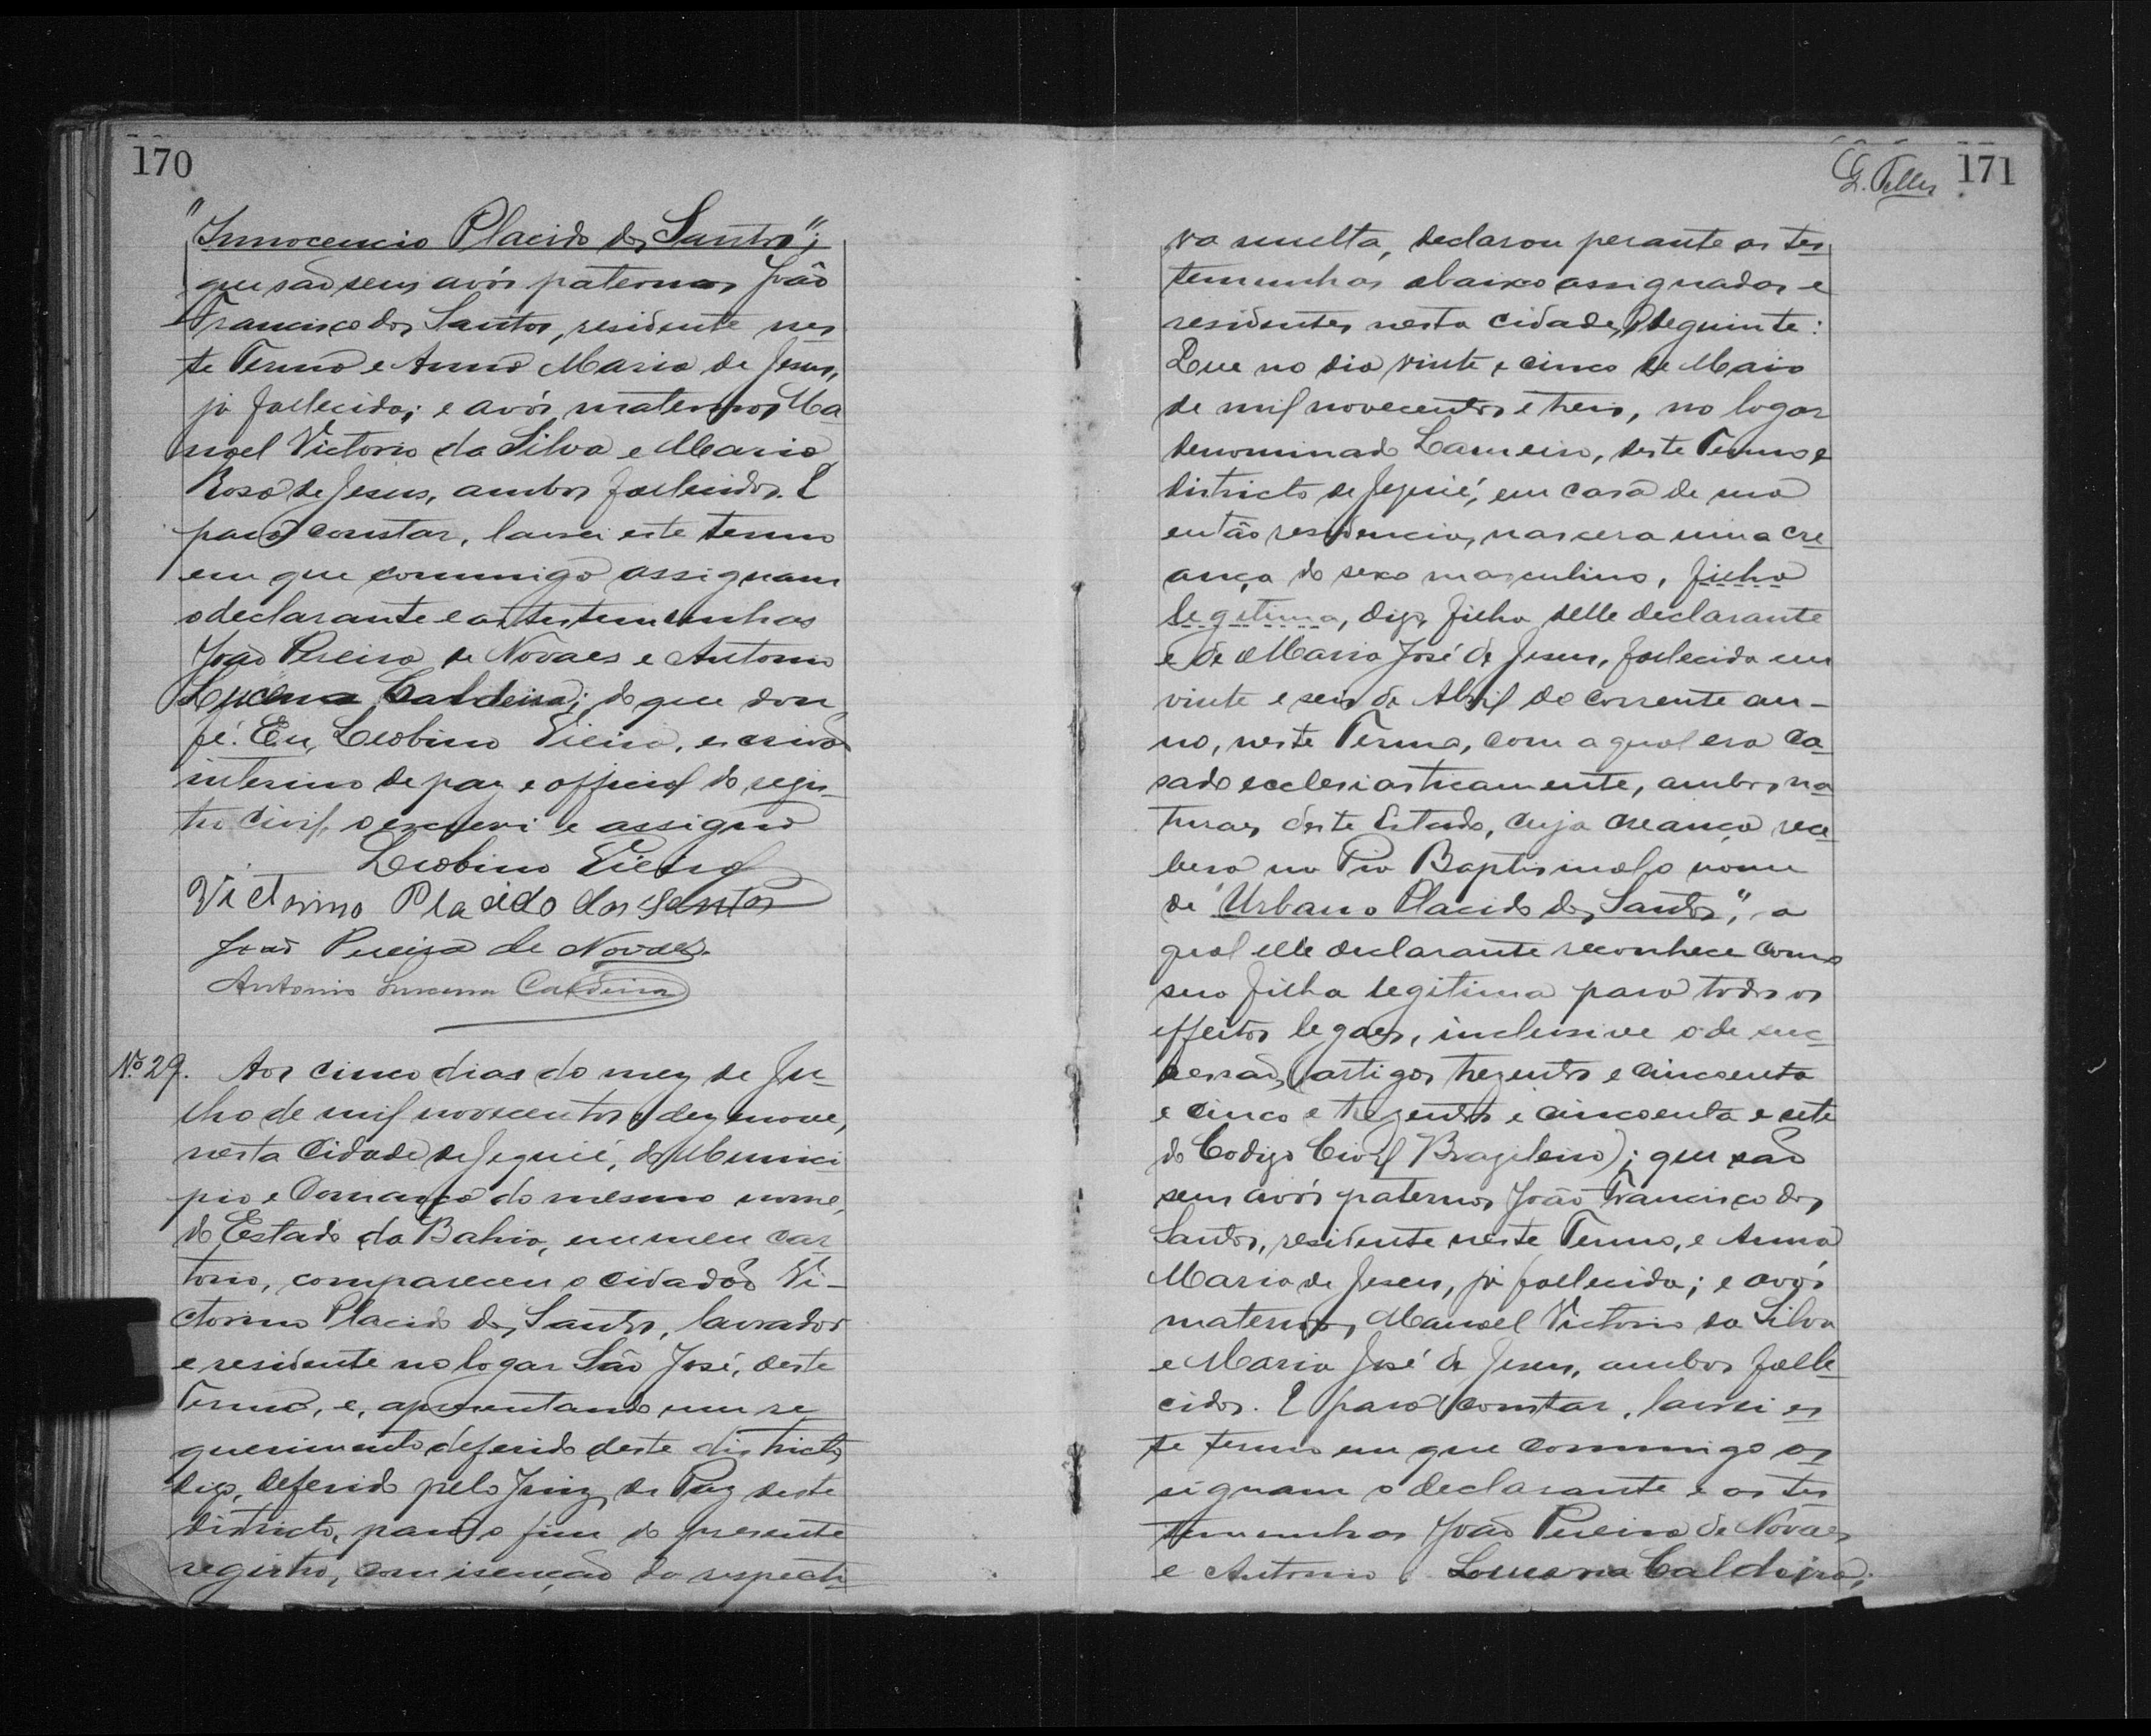 170
"Innocencio Placido dos Santos";
que são seus avós paternos João
Francisco dos Santos, residente nes
te Termo e Anna Maria de Jesus,
já fallecida; e avós maternos Ma
noel Victorio da Silva e Maria
Rosa de Jesus, ambos fallecidos. E
para constar, lavrei este termo
em que commigo assignam
o declarante e as testemunhas
João Pereira de Novaes e Antonio
Lucena Caldeira; do que dou
fé. Eu, Leobino Vieira, escrivão
interino de paz e official do regis
tro civil, o escrevi e assigno
Leobino Vieira
Victorino Placido dos Santos
João Pereira de Novaes.
Antonio Lucena Caldeira
Nº 29. Aos cinco dias do mez de Ju
lho de mil novecentos e dezenove,
nesta Cidade de Jequié, do Munici
pio e Comarca do mesmo nome,
do Estado da Bahia, em meu car
torio, compareceu o cidadão Vi-
ctorino Placido dos Santos, lavrador
e residente no logar São José, deste
Termo, e, apresentando um re
querimento deferido deste districto,
digo, deferido pelo Juiz de Paz deste
districto, para o fim do presente
registro, com isenção da respecti
G. Telles 171
va multa, declarou perante as tes
temunhas abaixo assignadas e
residentes nesta cidade, o seguinte:
Que no dia vinte e cinco de Maio
de mil novecentos e treis, no logar
denominado Lameiro, deste Termo e
districto de Jequié, em casa de sua
então residencia, nascera uma cre
ança do sexo masculino, filho
legitimo, digo, filho delle declarante
e de Maria José de Jesus, fallecida em
vinte e seis de Abril do corrente an-
no, neste Termo, com a qual era ca
sado ecclesiasticamente, ambos na
turaes deste Estado, cuja creança rece
bera na Pia Baptismal o nome
de "Urbano Placido dos Santos", a
qual elle declarante reconhece como
seu filho legitimo para todos os
effeitos legaes, inclusive o de suc
cessão, (artigos trezentos e cincoenta
e cinco e trezentos e cincoenta e sete
do Codigo Civil Brazileiro); que são
seus avós paternos João Francisco dos
Santos, residente neste Termo, e Anna
Maria de Jesus, já fallecida; e avós
maternos, Manoel Victorio da Silva
e Maria José de Jesus, ambos falle
cidos. E para constar, lavrei es
te termo em que commigo as
signam o declarante e as tes
temunhas João Pereira de Novaes
e Antonio Lucena Caldeira;